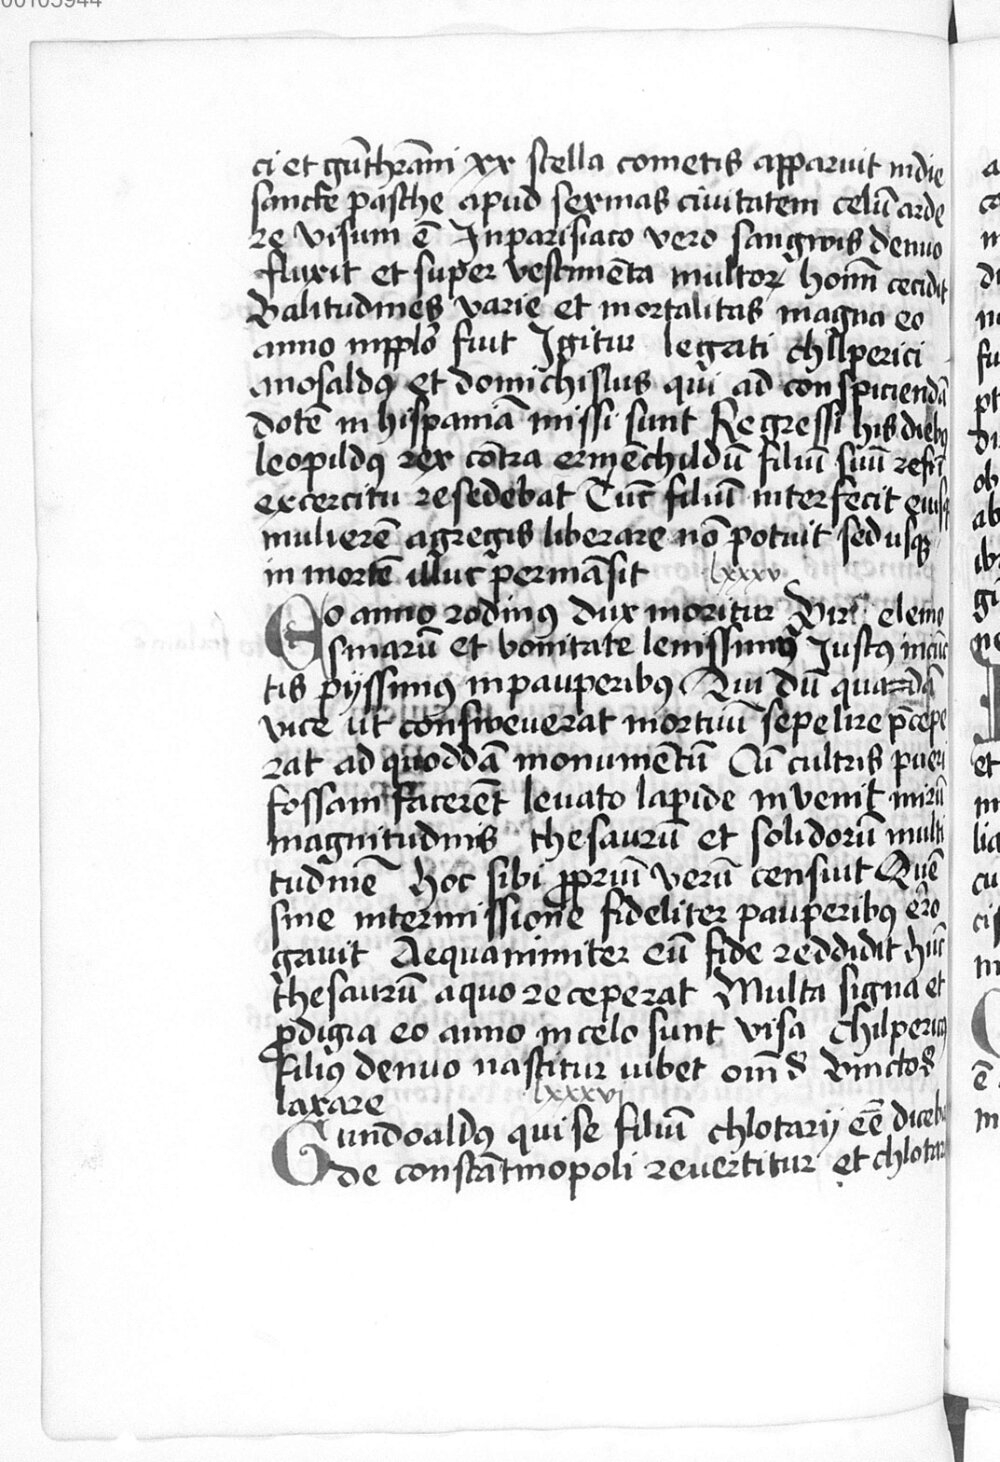 00103944
ci et gūthrām̄i xx stella cometis apparuit in die
sancte pasche apud sexmas ciuitatem celū arde
re visum ē In parisiaco vero sangwis denuo
fluxit et super vestimēta multoꝝ homī cecidit
valitudines varie et mortalitas magna eo
anno in pplō fuit Igitur legati chilperici
ansaldꝰ et domichislus qui ad conspiciendā
dotē in hispaniā missi sunt Regressi his diebꝰ
leopildꝰ rex cōtra ermēchildū filiū suū
excercitu resedebat Tūc filiū interfecit
mulierē a gregis liberare nō potuit sed usqꝫ
in mortē illuc permāsit lxxxv
Eo anno rodinꝰ dux moritur elemo
sinarū et bonitate lenissimꝰ Justꝰ
tis pyssimꝰ in pauperibꝰ Qui dū quadā
vice ut consweuerat mortuū sepelire p̄cepe
rat ad quoddā monumētū Cū cultris pueri
fossam facerēt leuato lapide invenit mirū
magnitudinis thesaurū et solidorū multi
tudinē hoc sibi ꝓpriū verū censuit Quē
sine intermissione fideliter pauperibꝰ ero
gauit Aequanimiter eū fide reddidit hūc
thesaurū a quo receperat Multa signa et
ꝓdigia eo anno in celo sunt visa chilpericꝰ
filiꝰ denuo nascitur iubet om̄s vinctos
laxare lxxxvi
Gundoaldꝰ qui se filiū chlotarij eē diceb
de constātinopoli revertitur et chlotar